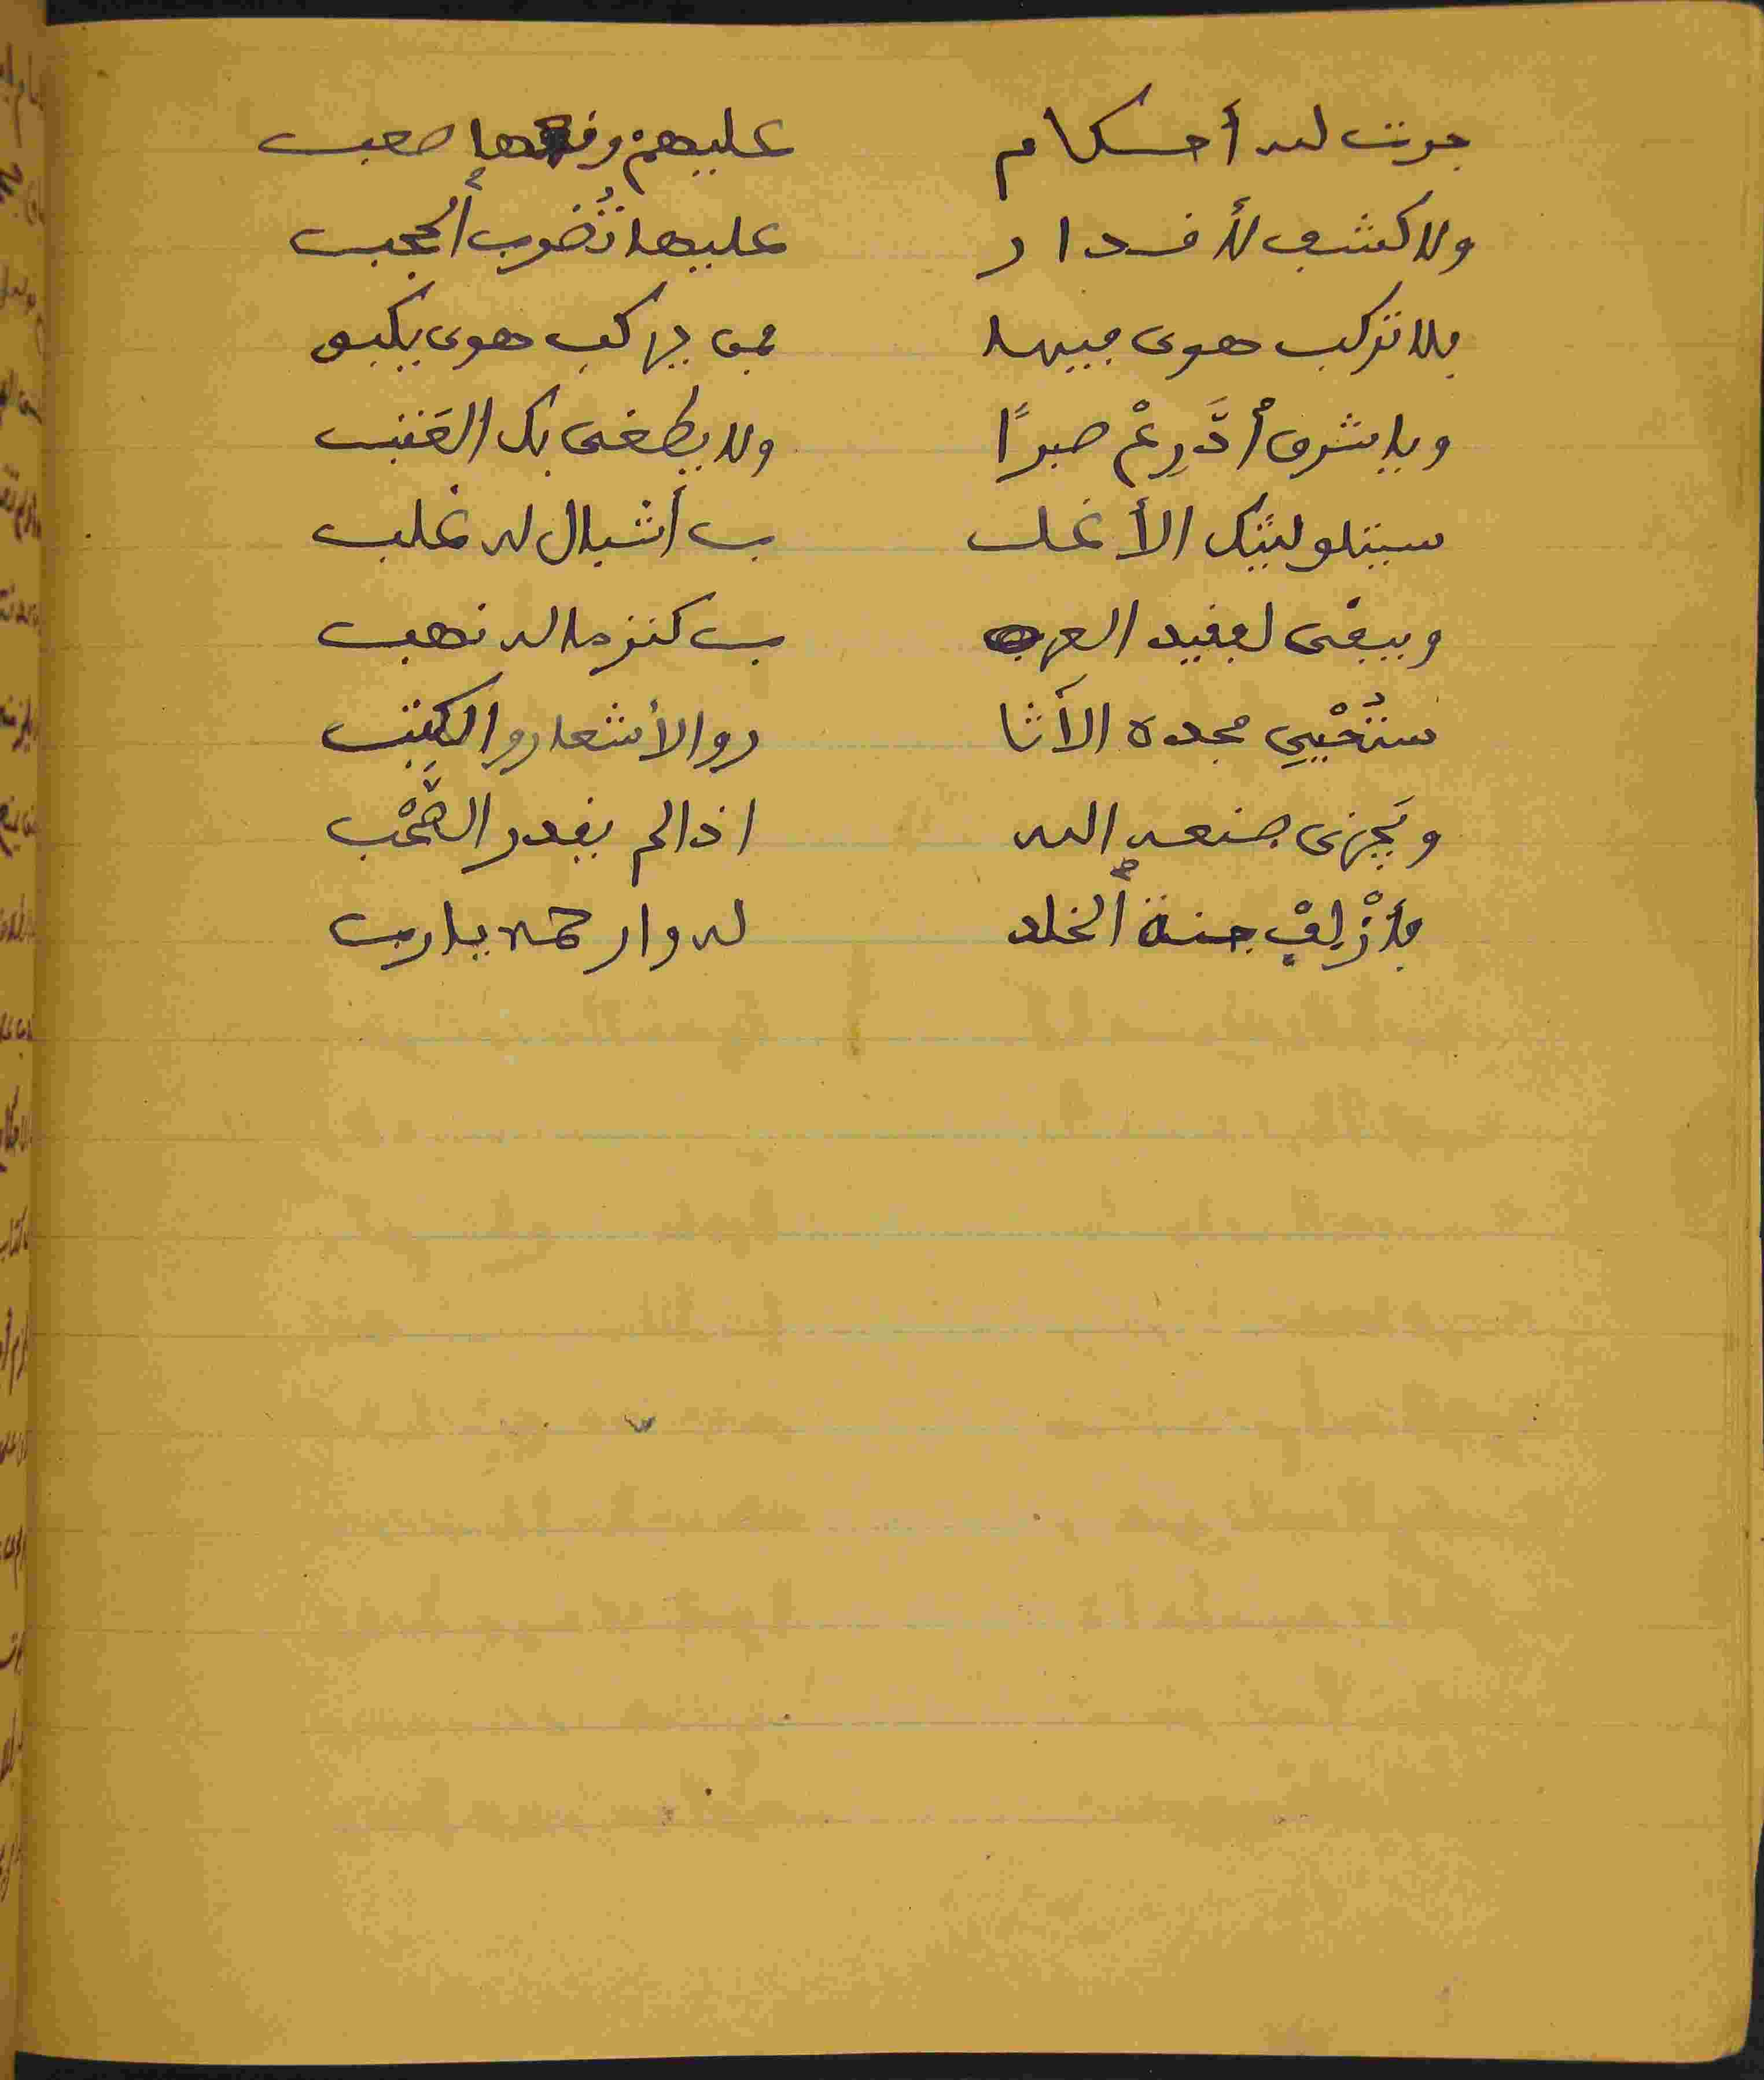 جرت لله أحكام عليهم وقعها صعب
ولا كشف لأقدار عليها تُضرب الحجب
فلا تركب هوى فيها فمن يركب هوى يكبو
ويا شرق أدَّرِعْ صبرًا ولا يطغى بك العَتْب
سيتلو ليثك الأغلـ ـب أشبال له غلب
ويبقى لفقيد العر ب كنز ماله نهب
ستُحْيِي مجده الآثا ر والأشعار والكتب
ويَجزى صنعه الله اذا لم يقدر الصَّحْب
فأزْلِفْ جنة الخلد له وارحمه يا رب